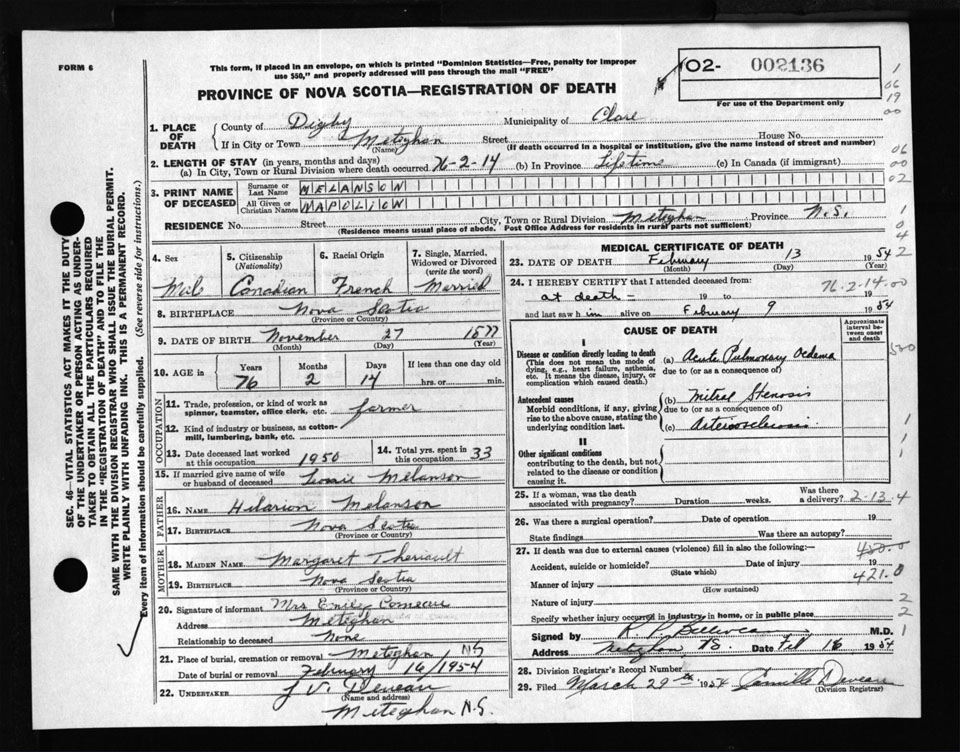 FORM 6
This form, if placed in an envelope, on which is printed "Dominion Statistics—Free, penalty for improper
use $50," and properly addressed will pass through the mail "FREE"
02- 002136
For use of the Department only
PROVINCE OF NOVA SCOTIA—REGISTRATION OF DEATH
1. PLACE OF DEATH
County of Digby Municipality of Clare
If in City or Town Meteghan Street House No.
(Name) (If death occurred in a hospital or institution, give the name instead of street and number)
2. LENGTH OF STAY (in years, months and days)
(a) In City, Town or Rural Division where death occurred 76-2-14 (b) In Province Lifetime (c) In Canada (if immigrant)
3. PRINT NAME OF DECEASED
Surname or Last Name MELANSON
All Given or Christian Names NAPOLION
RESIDENCE No. Street City, Town or Rural Division Meteghan Province N.S.
(Residence means usual place of abode. Post Office Address for residents in rural parts not sufficient)
4. Sex 5. Citizenship (Nationality) 6. Racial Origin 7. Single, Married, Widowed or Divorced (write the word)
Male Canadian French Married
8. BIRTHPLACE Nova Scotia
(Province or Country)
9. DATE OF BIRTH November 27 1877
(Month) (Day) (Year)
10. AGE in Years Months Days If less than one day
76 2 14 hrs. or min.
OCCUPATION
11. Trade, profession, or kind of work as spinner, teamster, office clerk, etc. farmer
12. Kind of industry or business, as cotton-mill, lumbering, bank, etc.
13. Date deceased last worked at this occupation 1950
14. Total yrs. spent in this occupation 33
15. If married give name of wife or husband of deceased Melanson
FATHER
16. NAME Hilarion Melanson
17. BIRTHPLACE Nova Scotia
(Province or Country)
MOTHER
18. MAIDEN NAME Margaret Theriault
19. BIRTHPLACE Nova Scotia
(Province or Country)
20. Signature of informant Mrs Emily Comeau
Address Meteghan
Relationship to deceased None
21. Place of burial, cremation or removal Meteghan NS
Date of burial or removal February 16/1954
22. UNDERTAKER J V.
(Name and address)
Meteghan N.S.
MEDICAL CERTIFICATE OF DEATH
23. DATE OF DEATH February 13 1954
(Month) (Day) (Year)
24. I HEREBY CERTIFY that I attended deceased from: 76-2-14.00
at death - 19 to 19
and last saw him alive on February 9 1954
CAUSE OF DEATH
Approximate interval between onset and death
I
Disease or condition directly leading to death
(This does not mean the mode of dying, e.g., heart failure, asthenia, etc. It means the disease, injury, or complication which caused death.)
(a) Acute Pulmonary Oedema
due to (or as a consequence of)
Antecedent causes
Morbid conditions, if any, giving rise to the above cause, stating the underlying condition last.
(b) Mitral Stenosis
due to (or as a consequence of)
(c) Arteriosclerosis
II
Other significant conditions
contributing to the death, but not related to the disease or condition causing it.
25. If a woman, was the death associated with pregnancy? Duration weeks. Was there a delivery? 2-13-4
26. Was there a surgical operation? Date of operation 19
State findings Was there an autopsy?
27. If death was due to external causes (violence) fill in also the following:— 450.0
Accident, suicide or homicide? Date of injury 19
(State which) 421.0
Manner of injury
(How sustained)
Nature of injury
Specify whether injury occurred in industry, in home, or in public place
Signed by M.D.
Address N.S. Date Feb 16 1954
28. Division Registrar's Record Number
29. Filed March 29th 1954 Camille Deveau
(Division Registrar)
SEC. 46—VITAL STATISTICS ACT MAKES IT THE DUTY
OF THE UNDERTAKER OR PERSON ACTING AS UNDER-
TAKER TO OBTAIN ALL THE PARTICULARS REQUIRED
IN THE "REGISTRATION OF DEATH" AND TO FILE THE
SAME WITH THE DIVISION REGISTRAR WHO SHALL ISSUE THE BURIAL PERMIT.
WRITE PLAINLY WITH UNFADING INK. THIS IS A PERMANENT RECORD.
Every item of information should be carefully supplied. (See reverse side for instructions.)
1
06
19
00
06
00
02
1
0
4
2
500
1
1
1
2
2
1